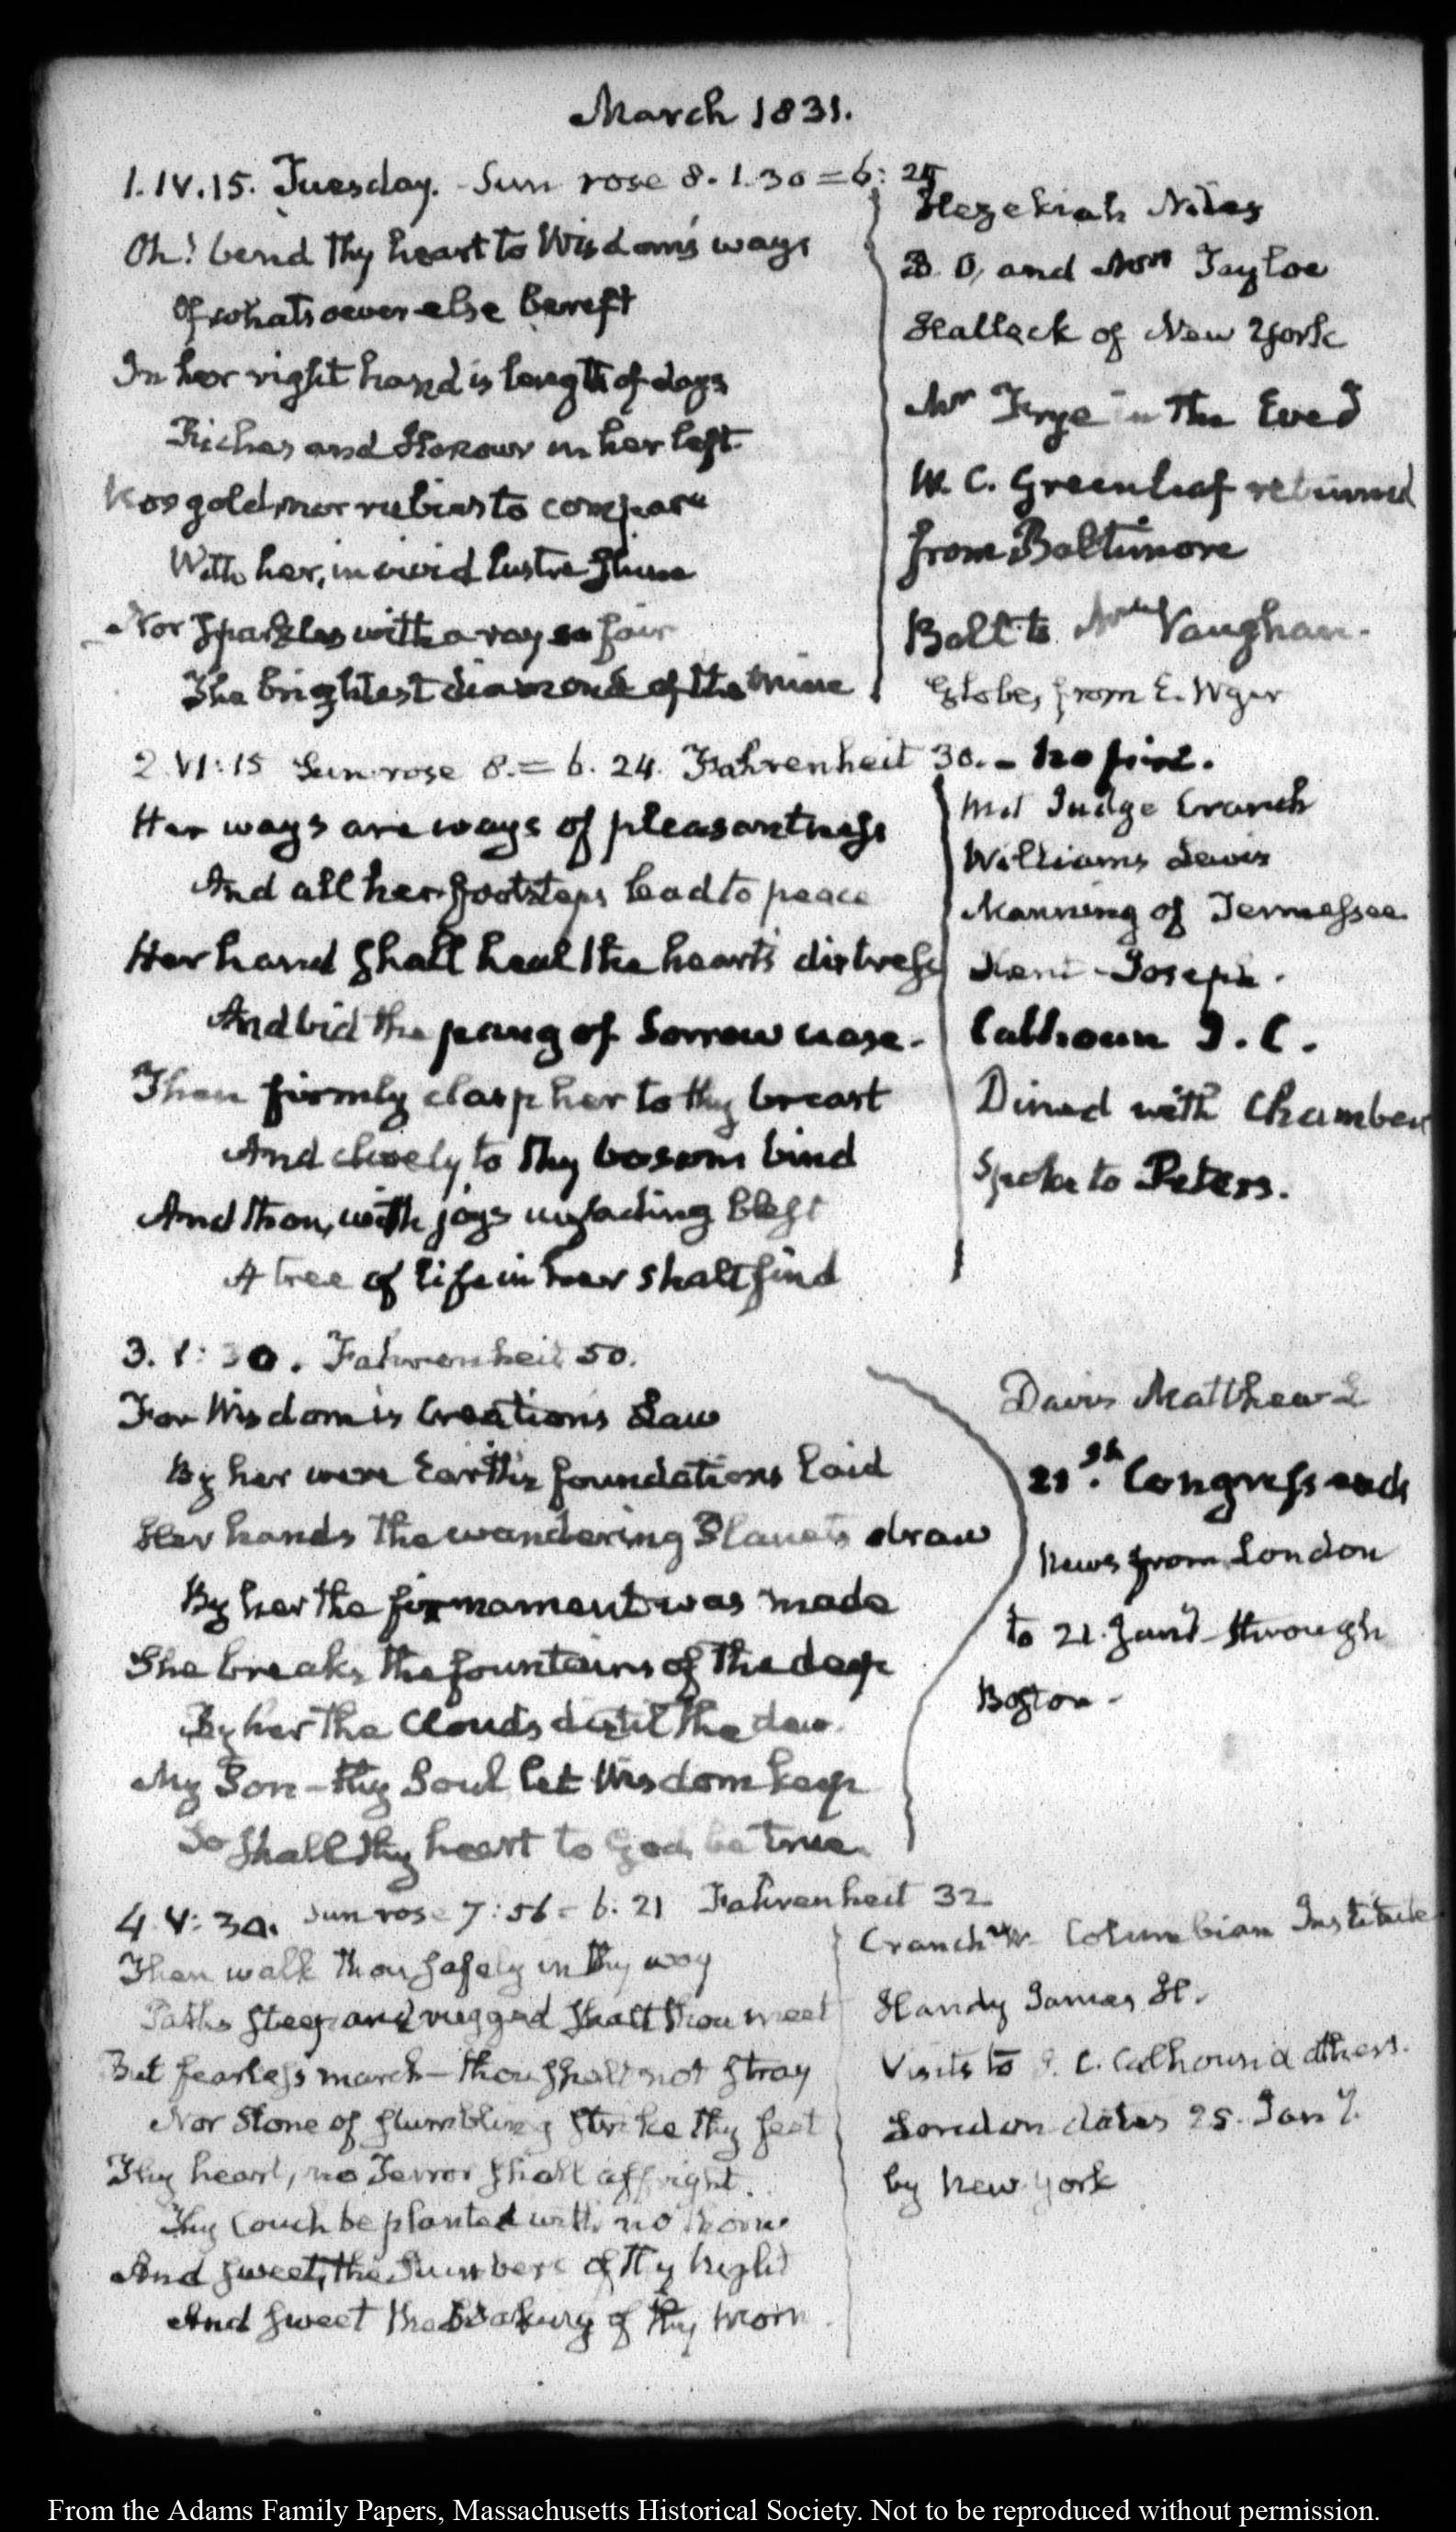 March 1831.
1. IV.15. Tuesday. Sun rose 8. 1. 30 = 6: 25
Oh! bend thy heart to Wisdom's ways
Of whatsoever else bereft
In her right hand is length of days
Riches and Honour in her left.
Nor gold, nor rubies to compare
With her, in vivid lustre shine
Nor sparkles with a ray so fair
The brightest diamond of the mine
Hezekiah Niles
B. O, and Mrs Tayloe
Hallack of New York
Mr Frye in the Eveg
W. C. Greenleaf returned
from Baltimore
Ball to Vaughan.
Globes from E. Wyer
2. VI:15 Sun rose 8. = 6. 24. Fahrenheit 30. - no fire.
Her ways are ways of pleasantness
And all her footsteps lead to peace
Her hand shall heal the heart's distress
And bid the pang of Sorrow cease.
Then firmly clasp her to thy breast
And closely to thy bosom bind
And thou, with joys unfading blest
A tree of life in her shalt find
Met Judge Cranch
Williams Lewis
Manning of Tennessee
Kent - Joseph.
Calhoun J. C.
Dined with Chamber
Spoke to Peters.
3. V: 30. Fahrenheit 50.
For Wisdom is Creation's Law
By her were Earth's foundations laid
Her hands the wandering Planets draw
By her the firmament was made
She breaks the fountains of the deep
By her the Clouds distil the dew.
My Son - thy Soul let Wisdom keep
So shall thy heart to God be true.
Davis Matthew L
21st. Congress ends
News from London
to 21. Jany through
Boston -
4. V: 30. Sun rose 7:56 = 6: 21 Fahrenheit 32
Then walk thou safely in thy way
Paths steep and rugged shalt thou meet
But fearless march - thou shalt not stray
Nor Stone of stumbling strike thy feet
Thy heart, no Terror shall affright.
Thy Couch be planted with no thorn
And sweet, the Slumbers of thy Night
And sweet the breaking of thy Morn.
Cranch W. Columbian Institute
Handy James H.
Visits to J. C. Calhoun & others.
London dates 25. Jany.
by New York
From the Adams Family Papers, Massachusetts Historical Society. Not to be reproduced without permission.